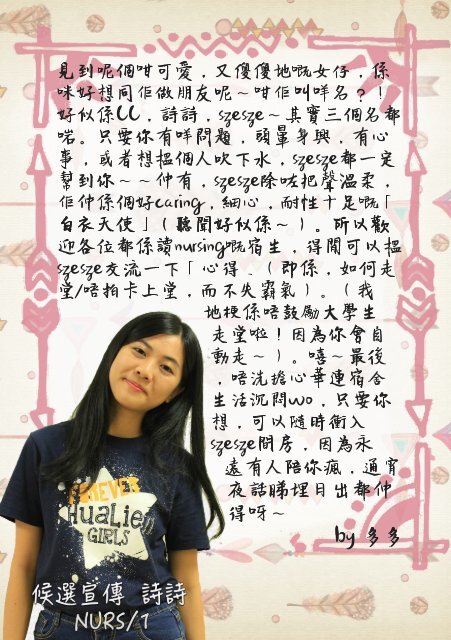 見到呢個咁可愛，又傻傻地嘅女仔，係
咪好想同佢做朋友呢~咁佢叫咩名？！
好似係CC，詩詩，szesze~其實三個名都
啱。只要你有咩問題，頭暈身興，有心
事，或者想搵個人吹下水，szesze都一定
幫到你~~仲有，szesze除咗把聲溫柔，
佢仲係個好caring，細心，耐性十足嘅「
白衣天使」（聽聞好似係~）。所以歡
迎各位都係讀nursing嘅宿生，得閒可以搵
szesze交流一下「心得」（即係，如何走
堂/唔拍卡上堂，而不失霸氣）。（我
地梗係唔鼓勵大學生
走堂啦！因為你會自
動走~）。嘻~最後
，唔洗擔心華連宿舍
生活沉悶wo，只要你
想，可以隨時衝入
szesze間房，因為永
遠有人陪你瘋，通宵
夜話睇埋日出都仲
得呀~
by 多多
FOREVER
HUALIEN
GIRLS
候選宣傳 詩詩
NURS/1